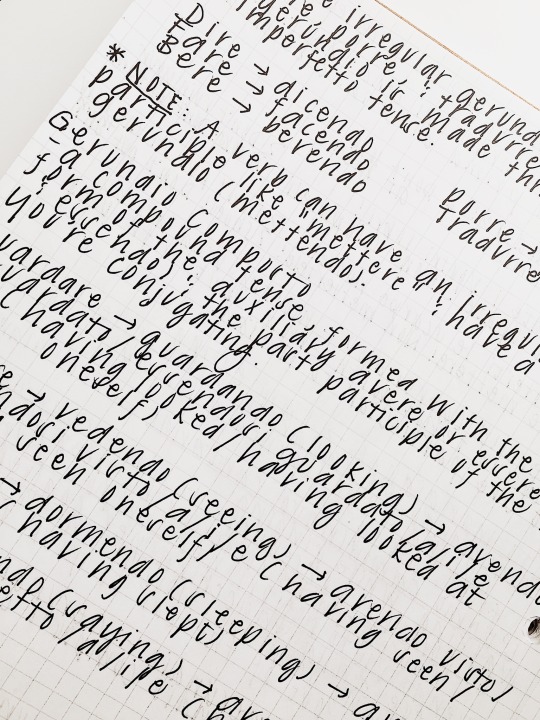 irregular gerund
porre, tradurre
gerundio is made thr
imperfetto tense.
Dire → dicendo
Fare → facendo
Bere → bevendo
porre →
Tradurre
* NOTE: A verb can have an irregul
participle like "mettere", have a
gerundio (mettendo).
Gerundio Composto
- a compound tense, formed with the
form of the auxiliary avere or essere
(essendo) & the past participle of the
you're conjugating.
uardare → guardando (looking) → avend
uardato/essendosi guardato/a/i/e
(having looked/having looked at
oneself)
→ vedendo (seeing) → avendo visto/
ndosi visto/a/i/e (having seen/
seen oneself)
→ dormendo (sleeping) → a
(having slept)
ndo (saying) → ave
etto/a/i/e (h